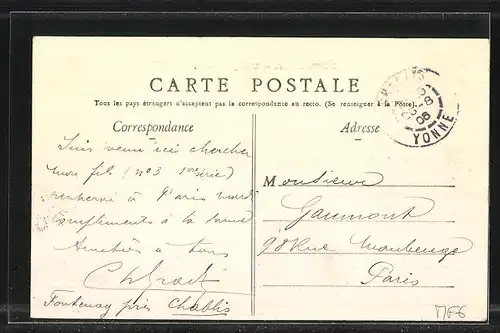 CARTE POSTALE
Tous les pays étrangers n'acceptent pas la correspondance au recto. (Se renseigner à la Poste).
Correspondance
Suis venu ici chercher
mon fils (no 3 1ere série)
à Paris mardi
Compliments à la
Amitiés à tous
Fontenay près Chablis
Adresse
Monsieur
Gaumont
98 Rue Maubeuge
Paris
YONNE